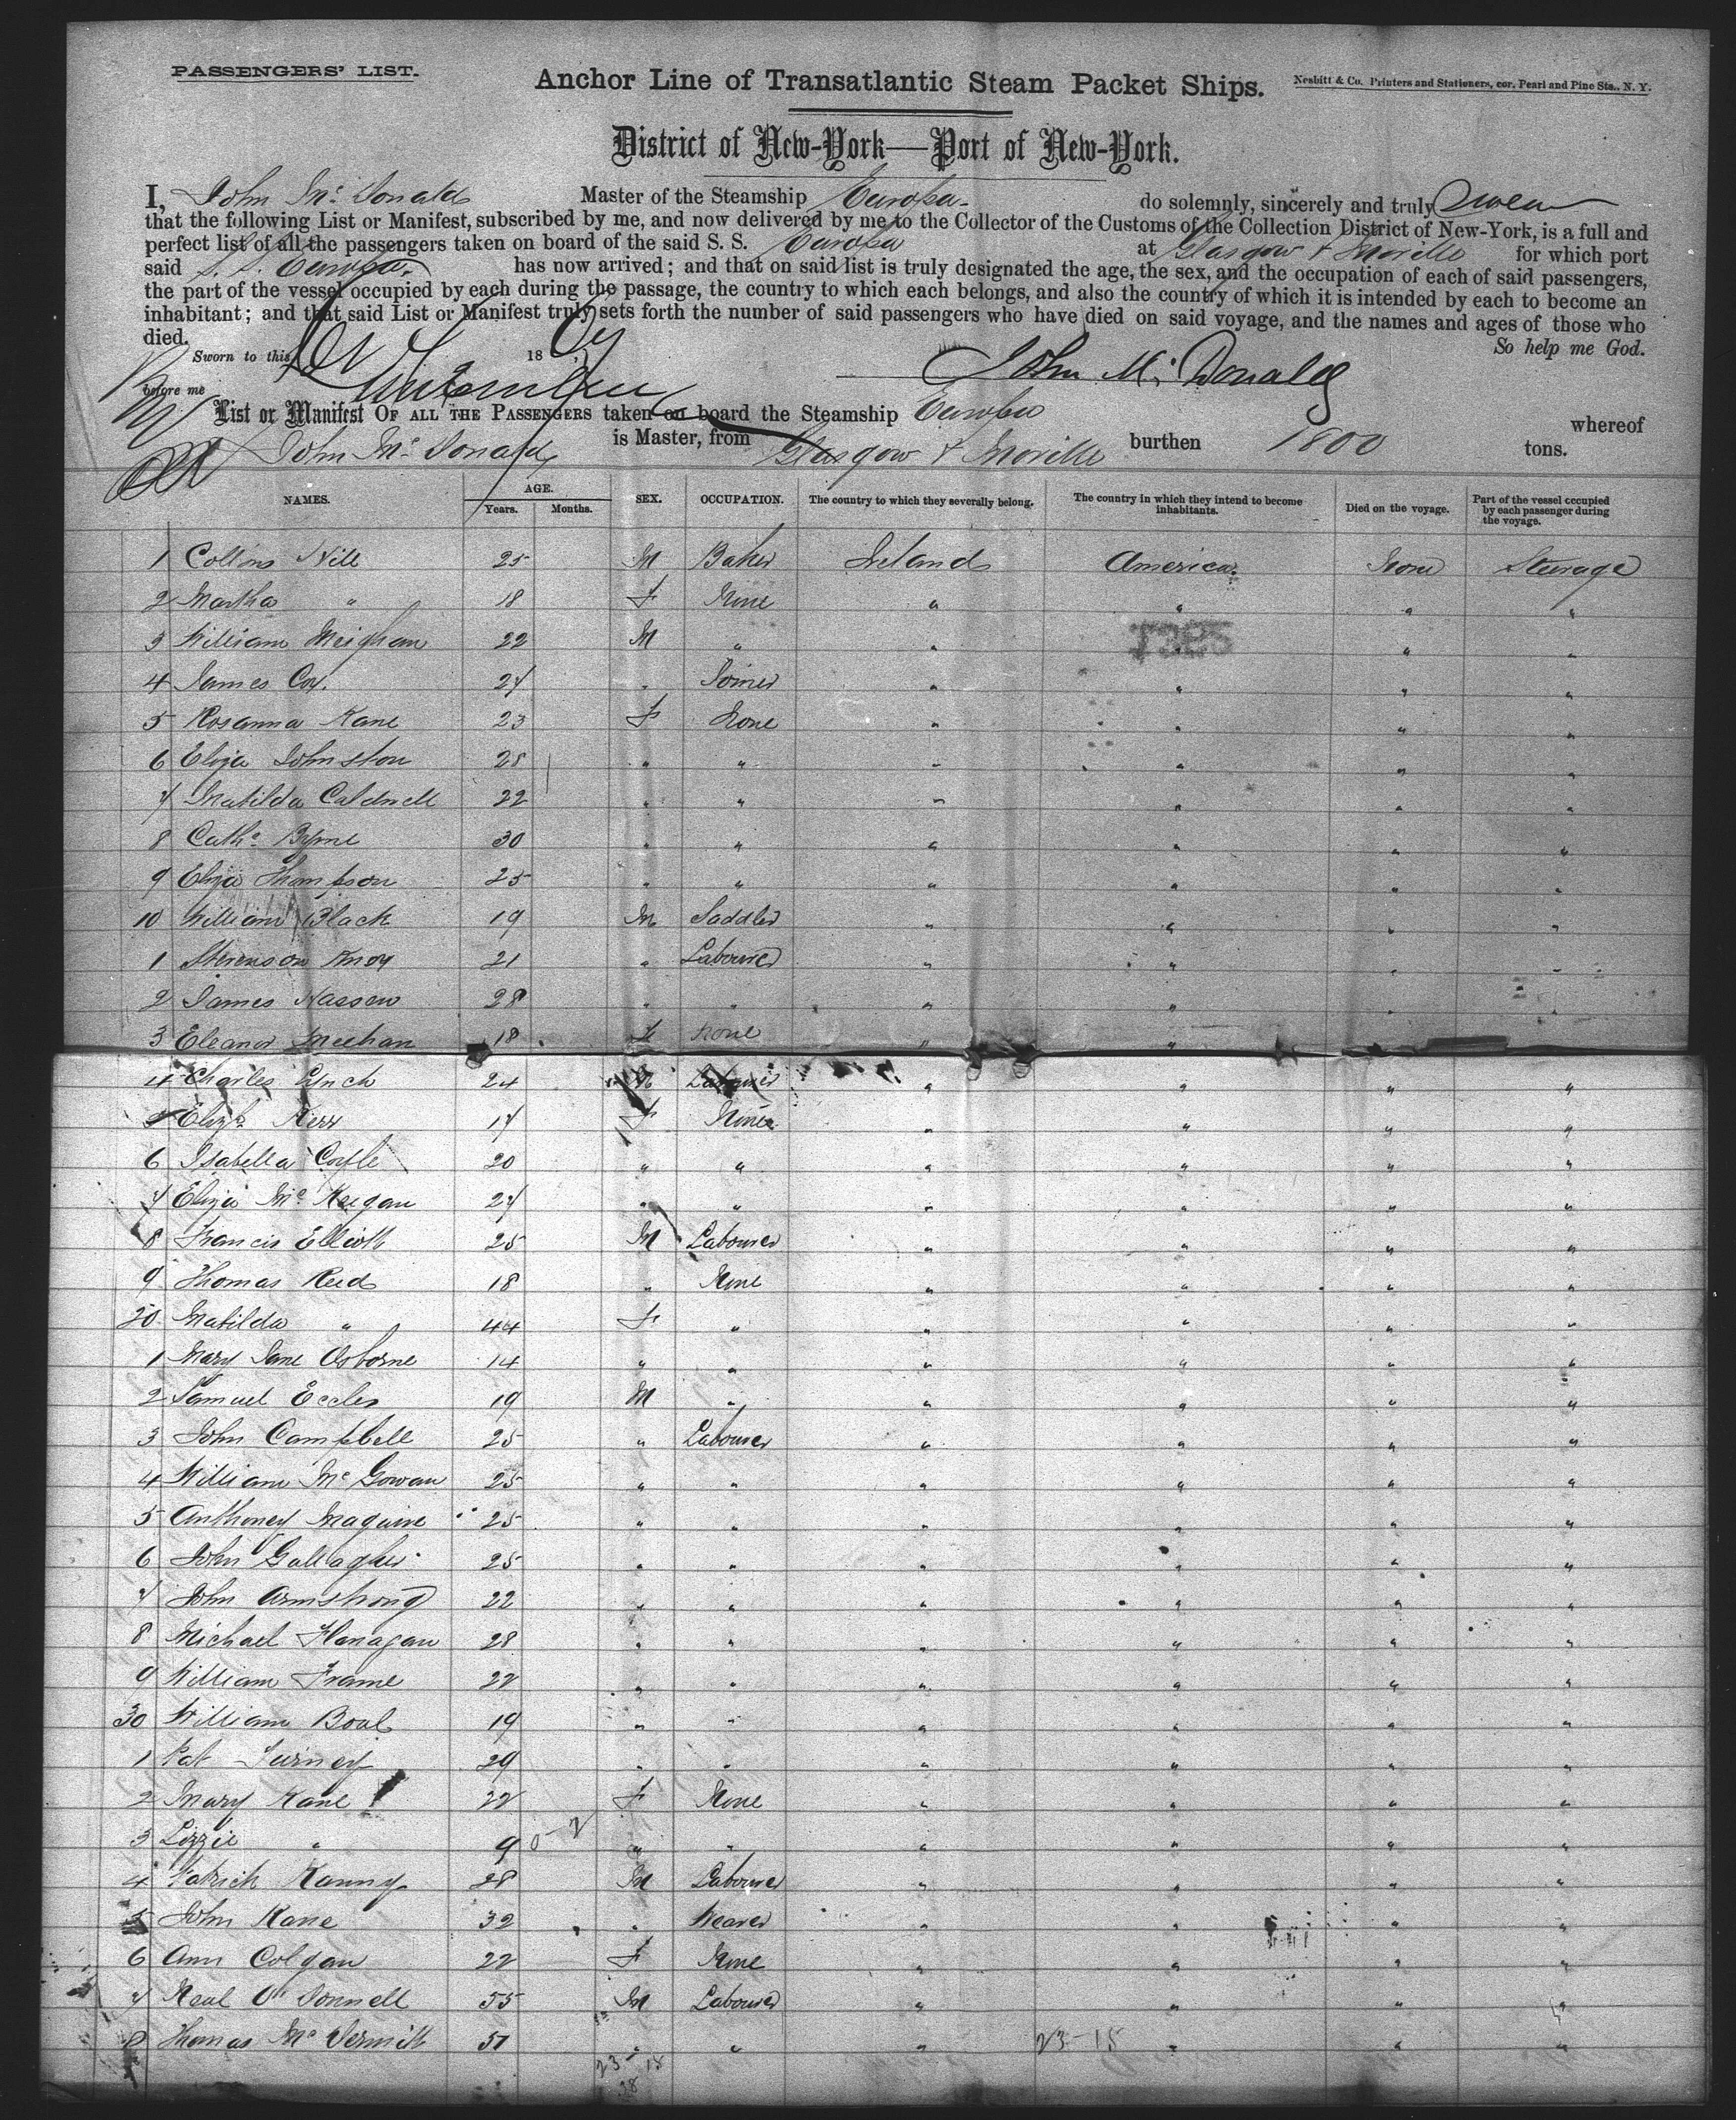 PASSENGERS' LIST.
Anchor Line of Transatlantic Steam Packet Ships.
Nesbitt & Co. Printers and Stationers, cor. Pearl and Pine Sts., N. Y.
District of New-York—Port of New-York.
I, John Mc Donald Master of the Steamship Europa do solemnly, sincerely and truly Swear
that the following List or Manifest, subscribed by me, and now delivered by me to the Collector of the Customs of the Collection District of New-York, is a full and
perfect list of all the passengers taken on board of the said S. S. Europa at Glasgow & Moville for which port
said S. S. Europa has now arrived; and that on said list is truly designated the age, the sex, and the occupation of each of said passengers,
the part of the vessel occupied by each during the passage, the country to which each belongs, and also the country of which it is intended by each to become an
inhabitant; and that said List or Manifest truly sets forth the number of said passengers who have died on said voyage, and the names and ages of those who
died. So help me God.
Sworn to this 18
before me John Mc Donald
List or Manifest OF ALL THE PASSENGERS taken on board the Steamship Europa whereof
John Mc Donald is Master, from Glasgow & Moville burthen 1800 tons.
NAMES. AGE. Years. Months. SEX. OCCUPATION. The country to which they severally belong. The country in which they intend to become inhabitants. Died on the voyage. Part of the vessel occupied by each passenger during the voyage.
1 Collins Nill 25 M Baker Ireland America None Steerage
2 Martha " 18 F None " " " "
3 William Meighan 22 M " " " " "
4 James Cox. 27 " Joiner " " " "
5 Rosanna Kane 23 F None " " " "
6 Eliza Johnston 28 " " " " " "
7 Matilda Caldwell 22 " " " " " "
8 Cathe Byrne 30 " " " " " "
9 Eliza Thompson 25 " " " " " "
10 William Black 19 M Saddler " " " "
1 Stevenson Knox 21 " Labourer " " " "
2 James Hasson 28 " " " " " "
3 Eleanor Meehan 18 F None " "
4 Charles Lynch 24 M Labourer " " " "
5 Elizth Kerr 17 F None " " " "
6 Isabella Coyle 20 " " " " " "
7 Eliza Mc Keegan 27 " " " " " "
8 Francis Elliott 25 M Labourer " " " "
9 Thomas Reid 18 " None " " " "
20 Matilda " 44 F " " " " "
1 Mary Jane Osborne 14 " " " " " "
2 Samuel Eccles 19 M " " " " "
3 John Campbell 25 " Labourer " " " "
4 William Mc Gowan 25 " " " " " "
5 Anthoney Maguire 25 " " " " " "
6 John Gallagher 25 " " " " " "
7 John Armstrong 22 " " " " " "
8 Michael Flanagan 28 " " " " " "
9 William Frame 22 " " " " " "
30 William Boal 19 " " " " " "
1 Pat Turney 29 " " " " " "
2 Mary Kane 22 F None " " " "
3 Lizzie " 9 " " " " " "
4 Patrick Kanny 28 M Labourer " " " "
5 John Kane 32 " Weaver " " " "
6 Ann Colgan 22 F None " " " "
7 Neal O'Donnell 55 M Labourer " " " "
8 Thomas Mc Dermitt 51 " " " " " "
23-15
23-15
38